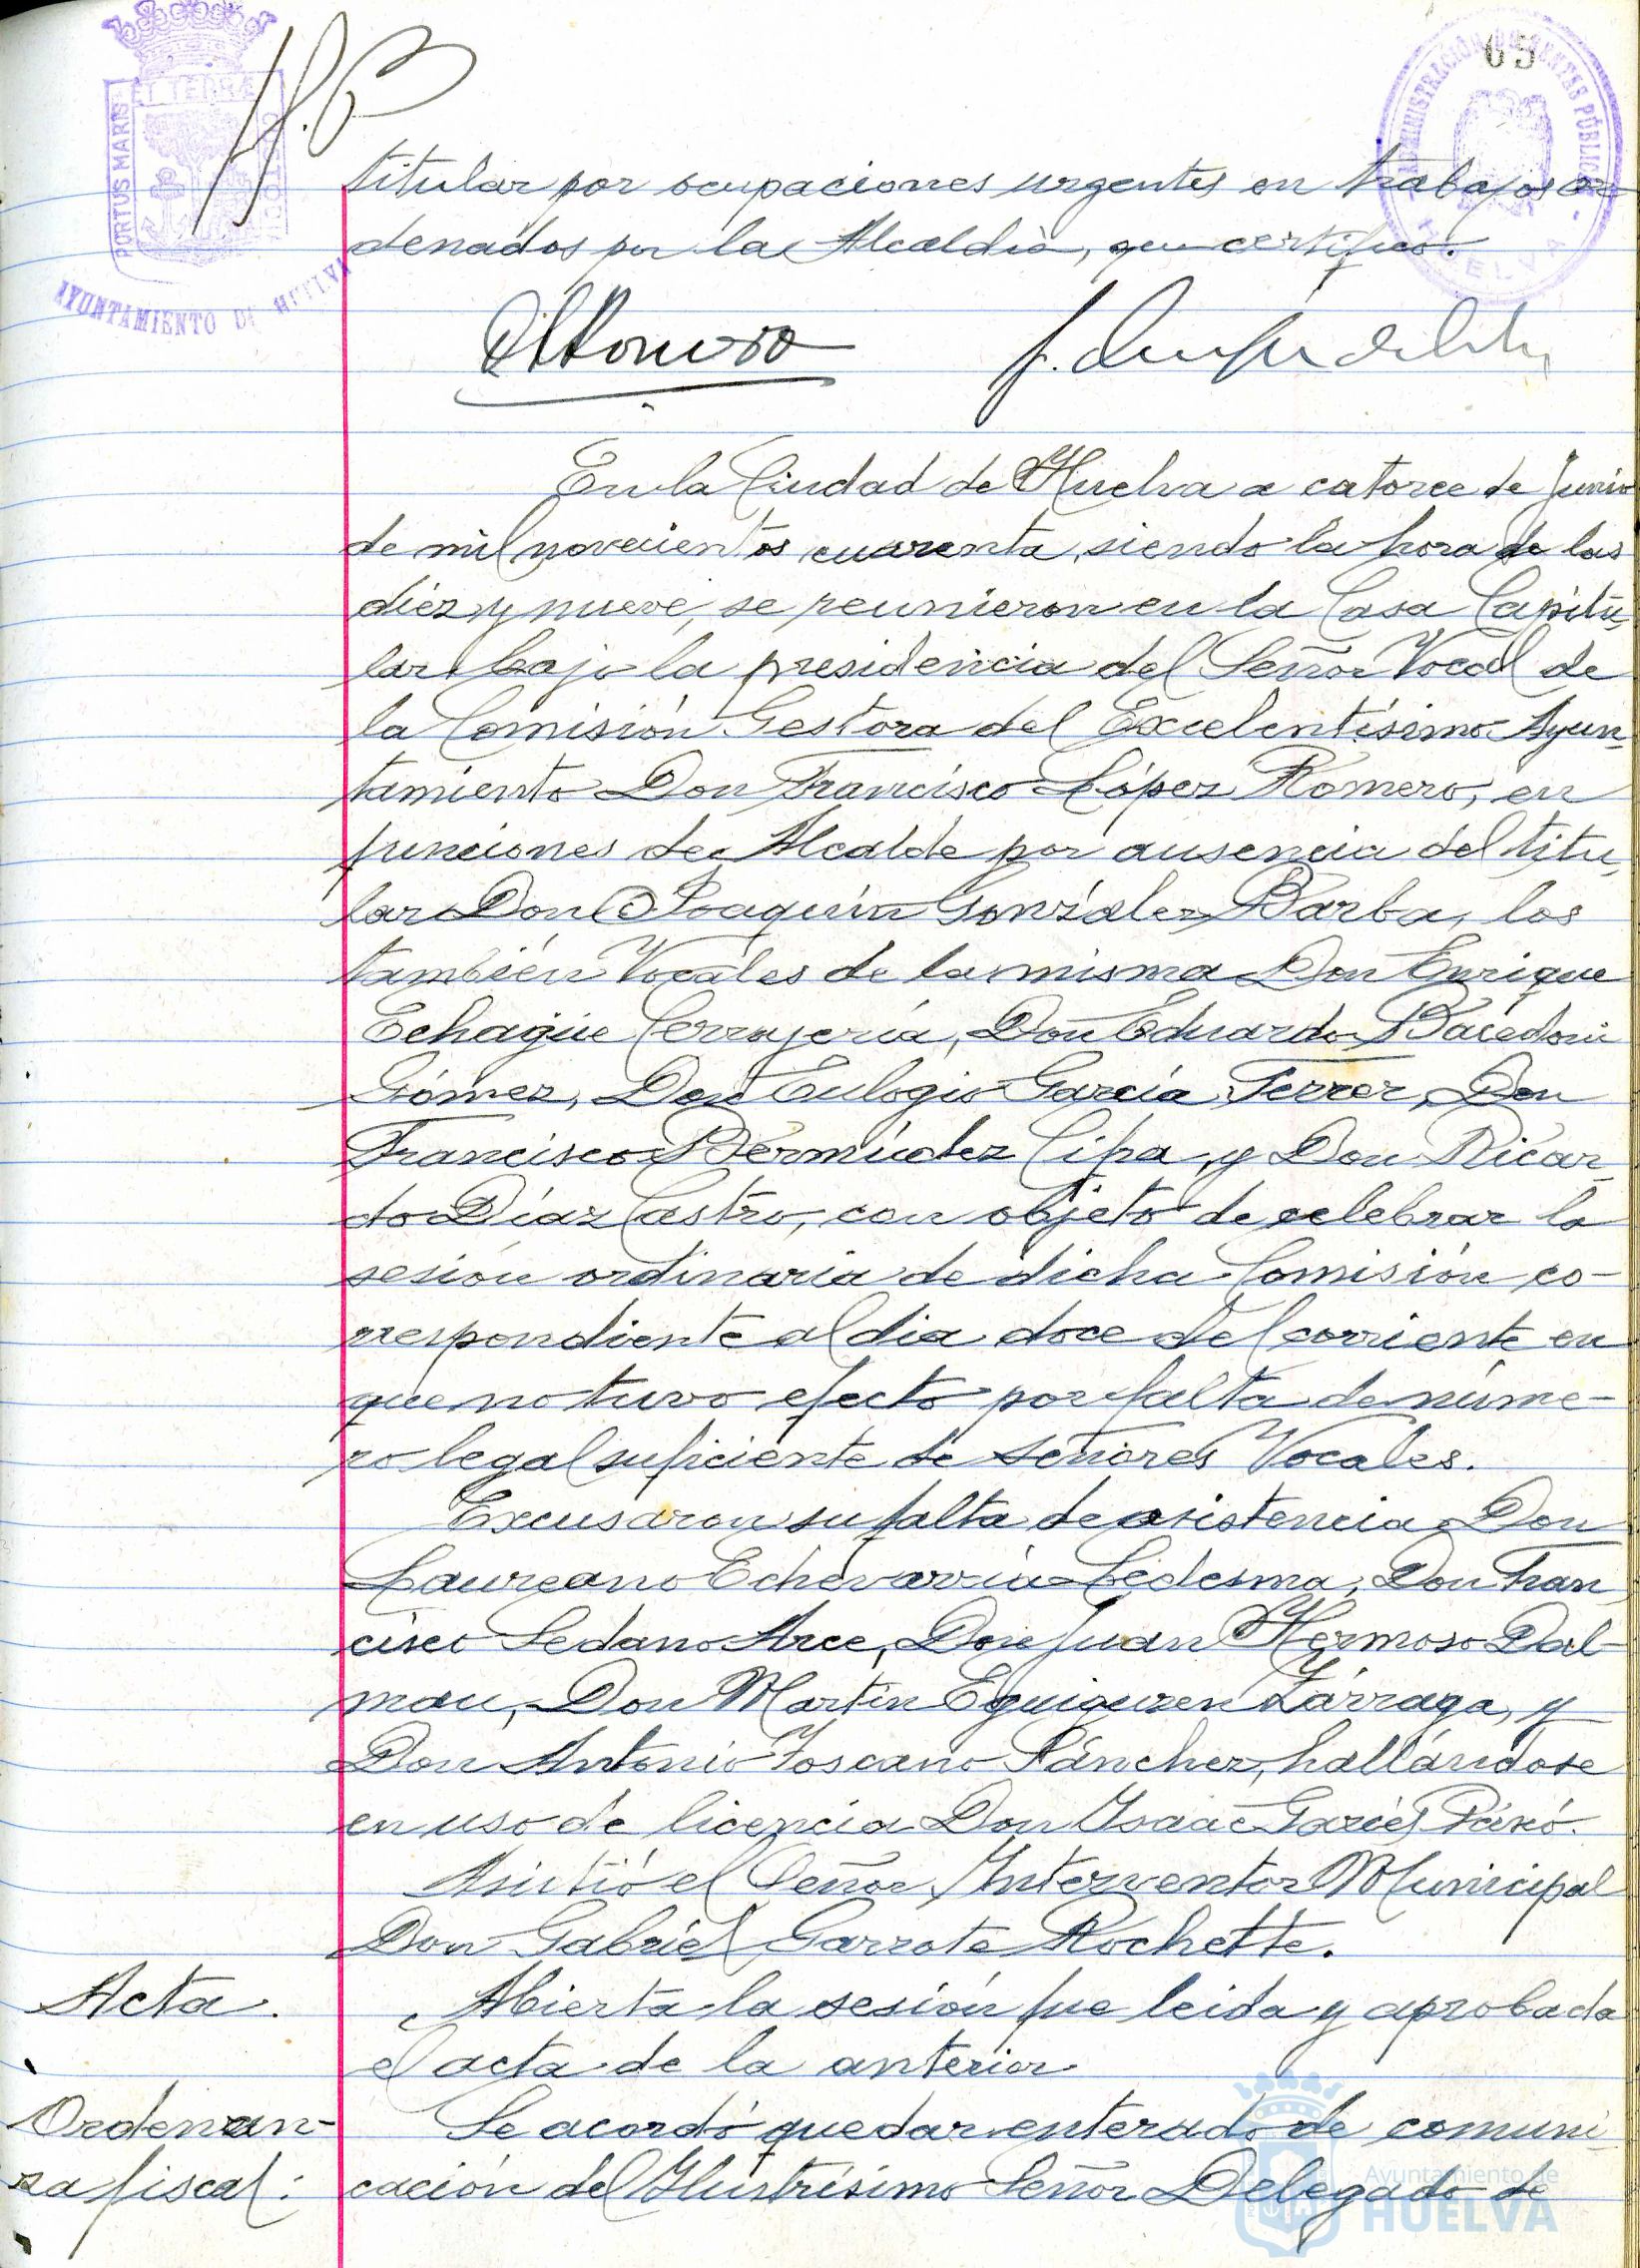 65
PORTUS MARIS
ET TERRÆ
CUSTODIA
AYUNTAMIENTO DE HUELVA
ADMINISTRACIÓN DE RENTES PÚBLICAS
HUELVA
titular por ocupaciones urgentes en trabajos or
denados por la Alcaldia, que certifico.
En la Ciudad de Huelva a catorce de Junio
de mil novecientos cuarenta, siendo la hora de las
diez y nueve, se reunieron en la Casa Capitu-
lar bajo la presidencia del Señor Vocal de
la Comisión Gestora del Excelentísimo Ayun-
tamiento Don Francisco López Romero, en
funciones de Alcalde por ausencia del titu-
lar Don Joaquín González Barba, los
también Vocales de la misma Don Enrique
Echagüe Cerrajería, Don Eduardo Bacedoni
Gómez, Don Eulogio García Ferrer, Don
Francisco Bermúdez Cipa y Don Ricar-
do Díaz Castro, con objeto de celebrar la
sesión ordinaria de dicha Comisión co-
rrespondiente al dia doce del corriente en
que no tuvo efecto por falta de núme-
ro legal suficiente de señores Vocales.
Excusaron su falta de asistencia Don
Laureano Echevarría Ledesma, Don Fran
cisco Sedano Arce, Don Juan Hermoso Dal-
mau, Don Martín Eguiguren Lárraga, y
Don Antonio Toscano Sánchez, hallándose
en uso de licencia Don Ysaac
Asistió el Señor Interventor Municipal
Don Gabriel Garrote Rochette.
Acta.
Abierta la sesión fue leida y aprobada
el acta de la anterior.
Ordenan-
za fiscal:
Se acordó quedar enterado de comuni-
cación del Ylustrísimo Señor Delegado de
Ayuntamiento de
HUELVA